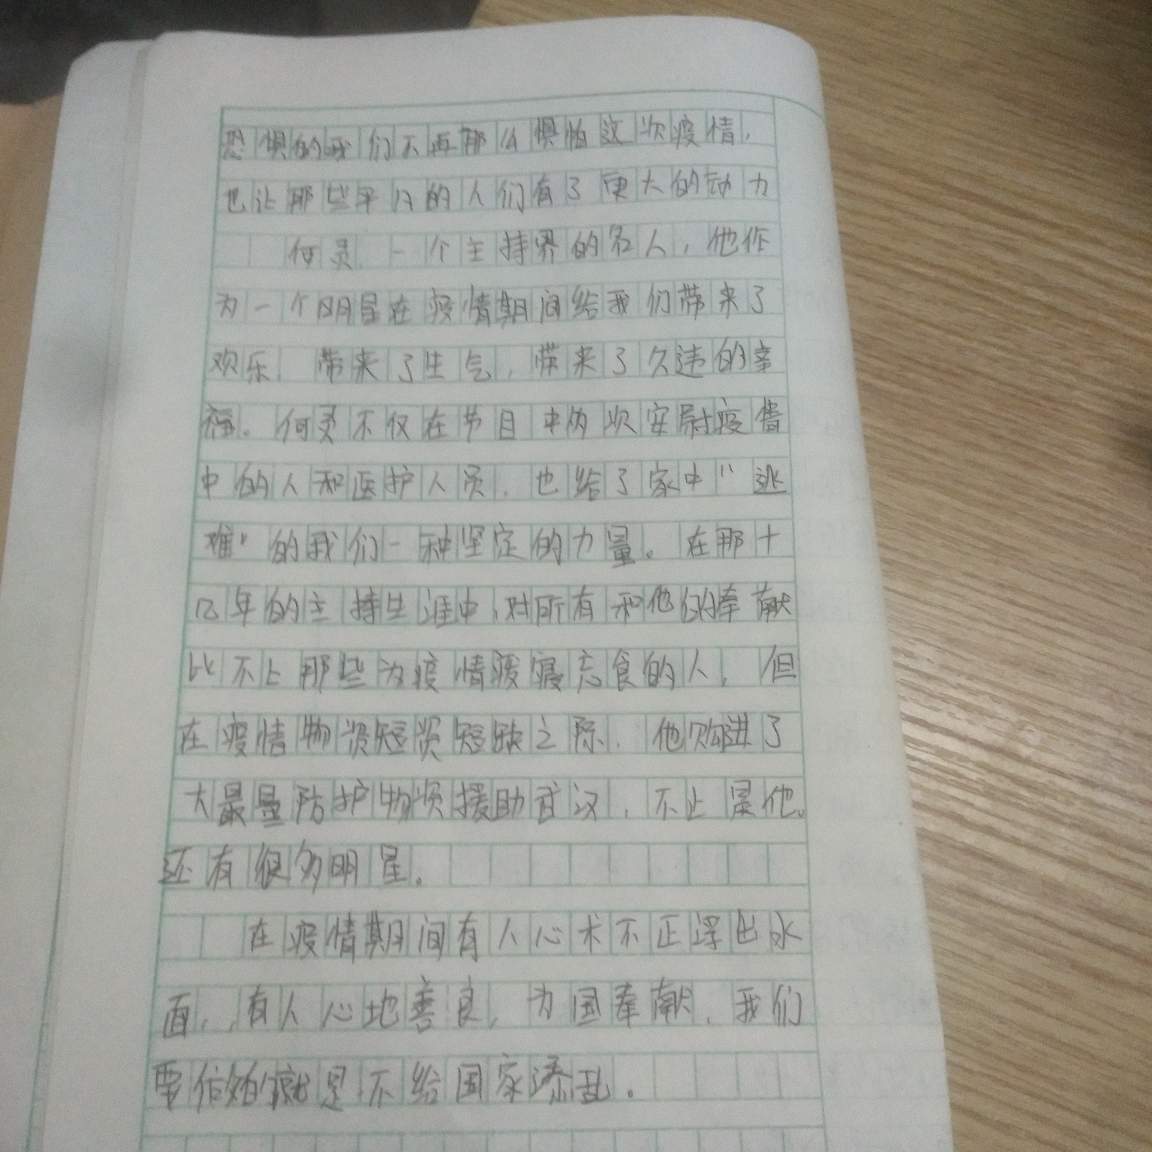 恐惧的我们不再那么惧怕这次疫情，
也让那些平凡的人们有了更大的动力
何炅，一个主持界的名人，他作
为一个明星在疫情期间给我们带来了
欢乐，带来了生气，带来了久违的幸
福。何炅不仅在节目中两次安慰疫情
中的人和医护人员，也给了家中“逃
难”的我们一种坚定的力量。在那十
几年的主持生涯中，对所有和他的奉献
比不上那些为疫情废寝忘食的人，但
在疫情物资短资短缺之际，他购进了
大最量防护物资援助武汉，不止是他。
还有很多明星。
在疫情期间有人心术不正浮出水
面，，有人心地善良，为国奉献，我们
要作的就是不给国家添乱。